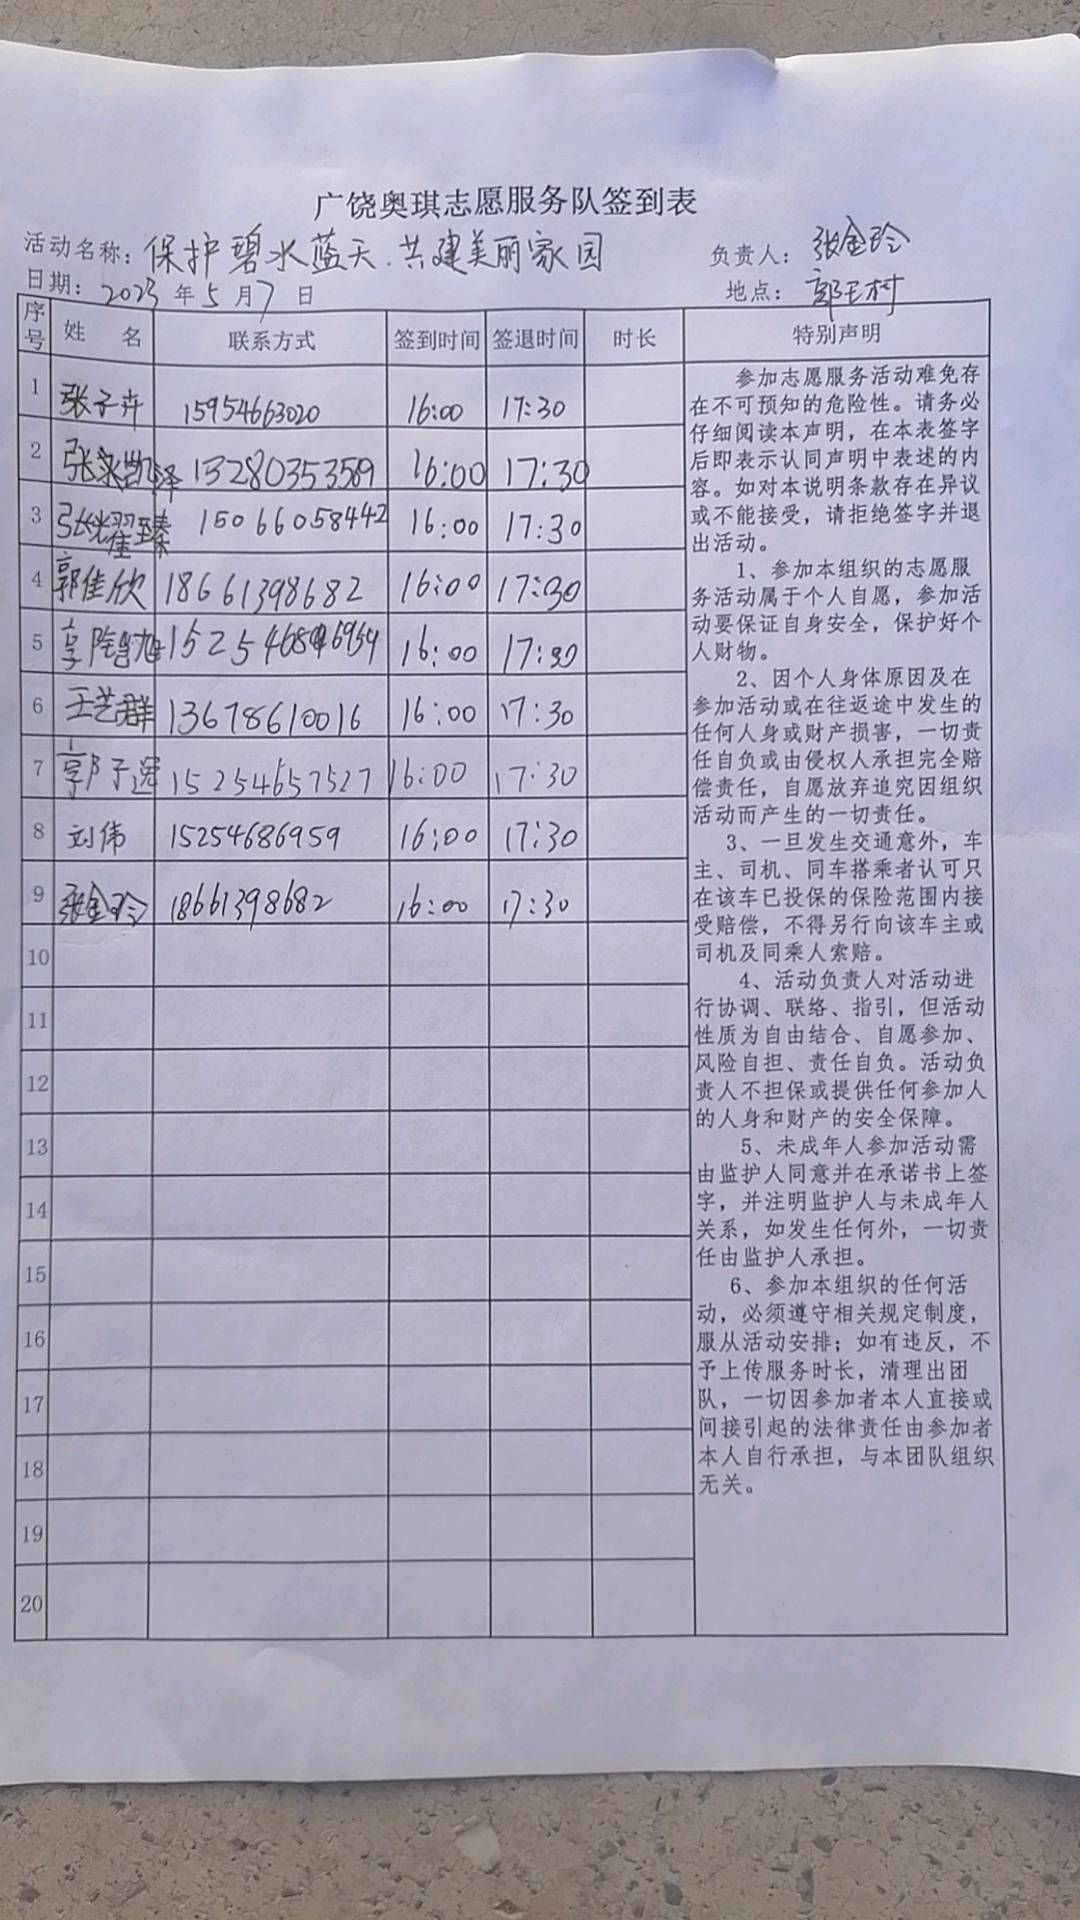 广饶奥琪志愿服务队签到表
活动名称：保护碧水蓝天.共建美丽家园 负责人：张金玲
日期：2023年5月7日 地点：郭王村
序号 姓名 联系方式 签到时间 签退时间 时长 特别声明
1 张子卉 15954663020 16:00 17:30
2 张家凯泽 13280353589 16:00 17:30
3 张耀臻 15066058442 16:00 17:30
4 郭佳欣 18661398682 16:00 17:30
5 16:00 17:30
6 王艺群 13678610016 16:00 17:30
7 15254657527 16:00 17:30
8 刘伟 15254686959 16:00 17:30
9 张金玲 18661398682 16:00 17:30
10
11
12
13
14
15
16
17
18
19
20
参加志愿服务活动难免存
在不可预知的危险性。请务必
仔细阅读本声明，在本表签字
后即表示认同声明中表述的内
容。如对本说明条款存在异议
或不能接受，请拒绝签字并退
出活动。
1、参加本组织的志愿服
务活动属于个人自愿，参加活
动要保证自身安全，保护好个
人财物。
2、因个人身体原因及在
参加活动或在往返途中发生的
任何人身或财产损害，一切责
任自负或由侵权人承担完全赔
偿责任，自愿放弃追究因组织
活动而产生的一切责任。
3、一旦发生交通意外，车
主、司机、同车搭乘者认可只
在该车已投保的保险范围内接
受赔偿，不得另行向该车主或
司机及同乘人索赔。
4、活动负责人对活动进
行协调、联络、指引，但活动
性质为自由结合、自愿参加、
风险自担、责任自负。活动负
责人不担保或提供任何参加人
的人身和财产的安全保障。
5、未成年人参加活动需
由监护人同意并在承诺书上签
字，并注明监护人与未成年人
关系，如发生任何外，一切责
任由监护人承担。
6、参加本组织的任何活
动，必须遵守相关规定制度，
服从活动安排；如有违反，不
予上传服务时长，清理出团
队，一切因参加者本人直接或
间接引起的法律责任由参加者
本人自行承担，与本团队组织
无关。